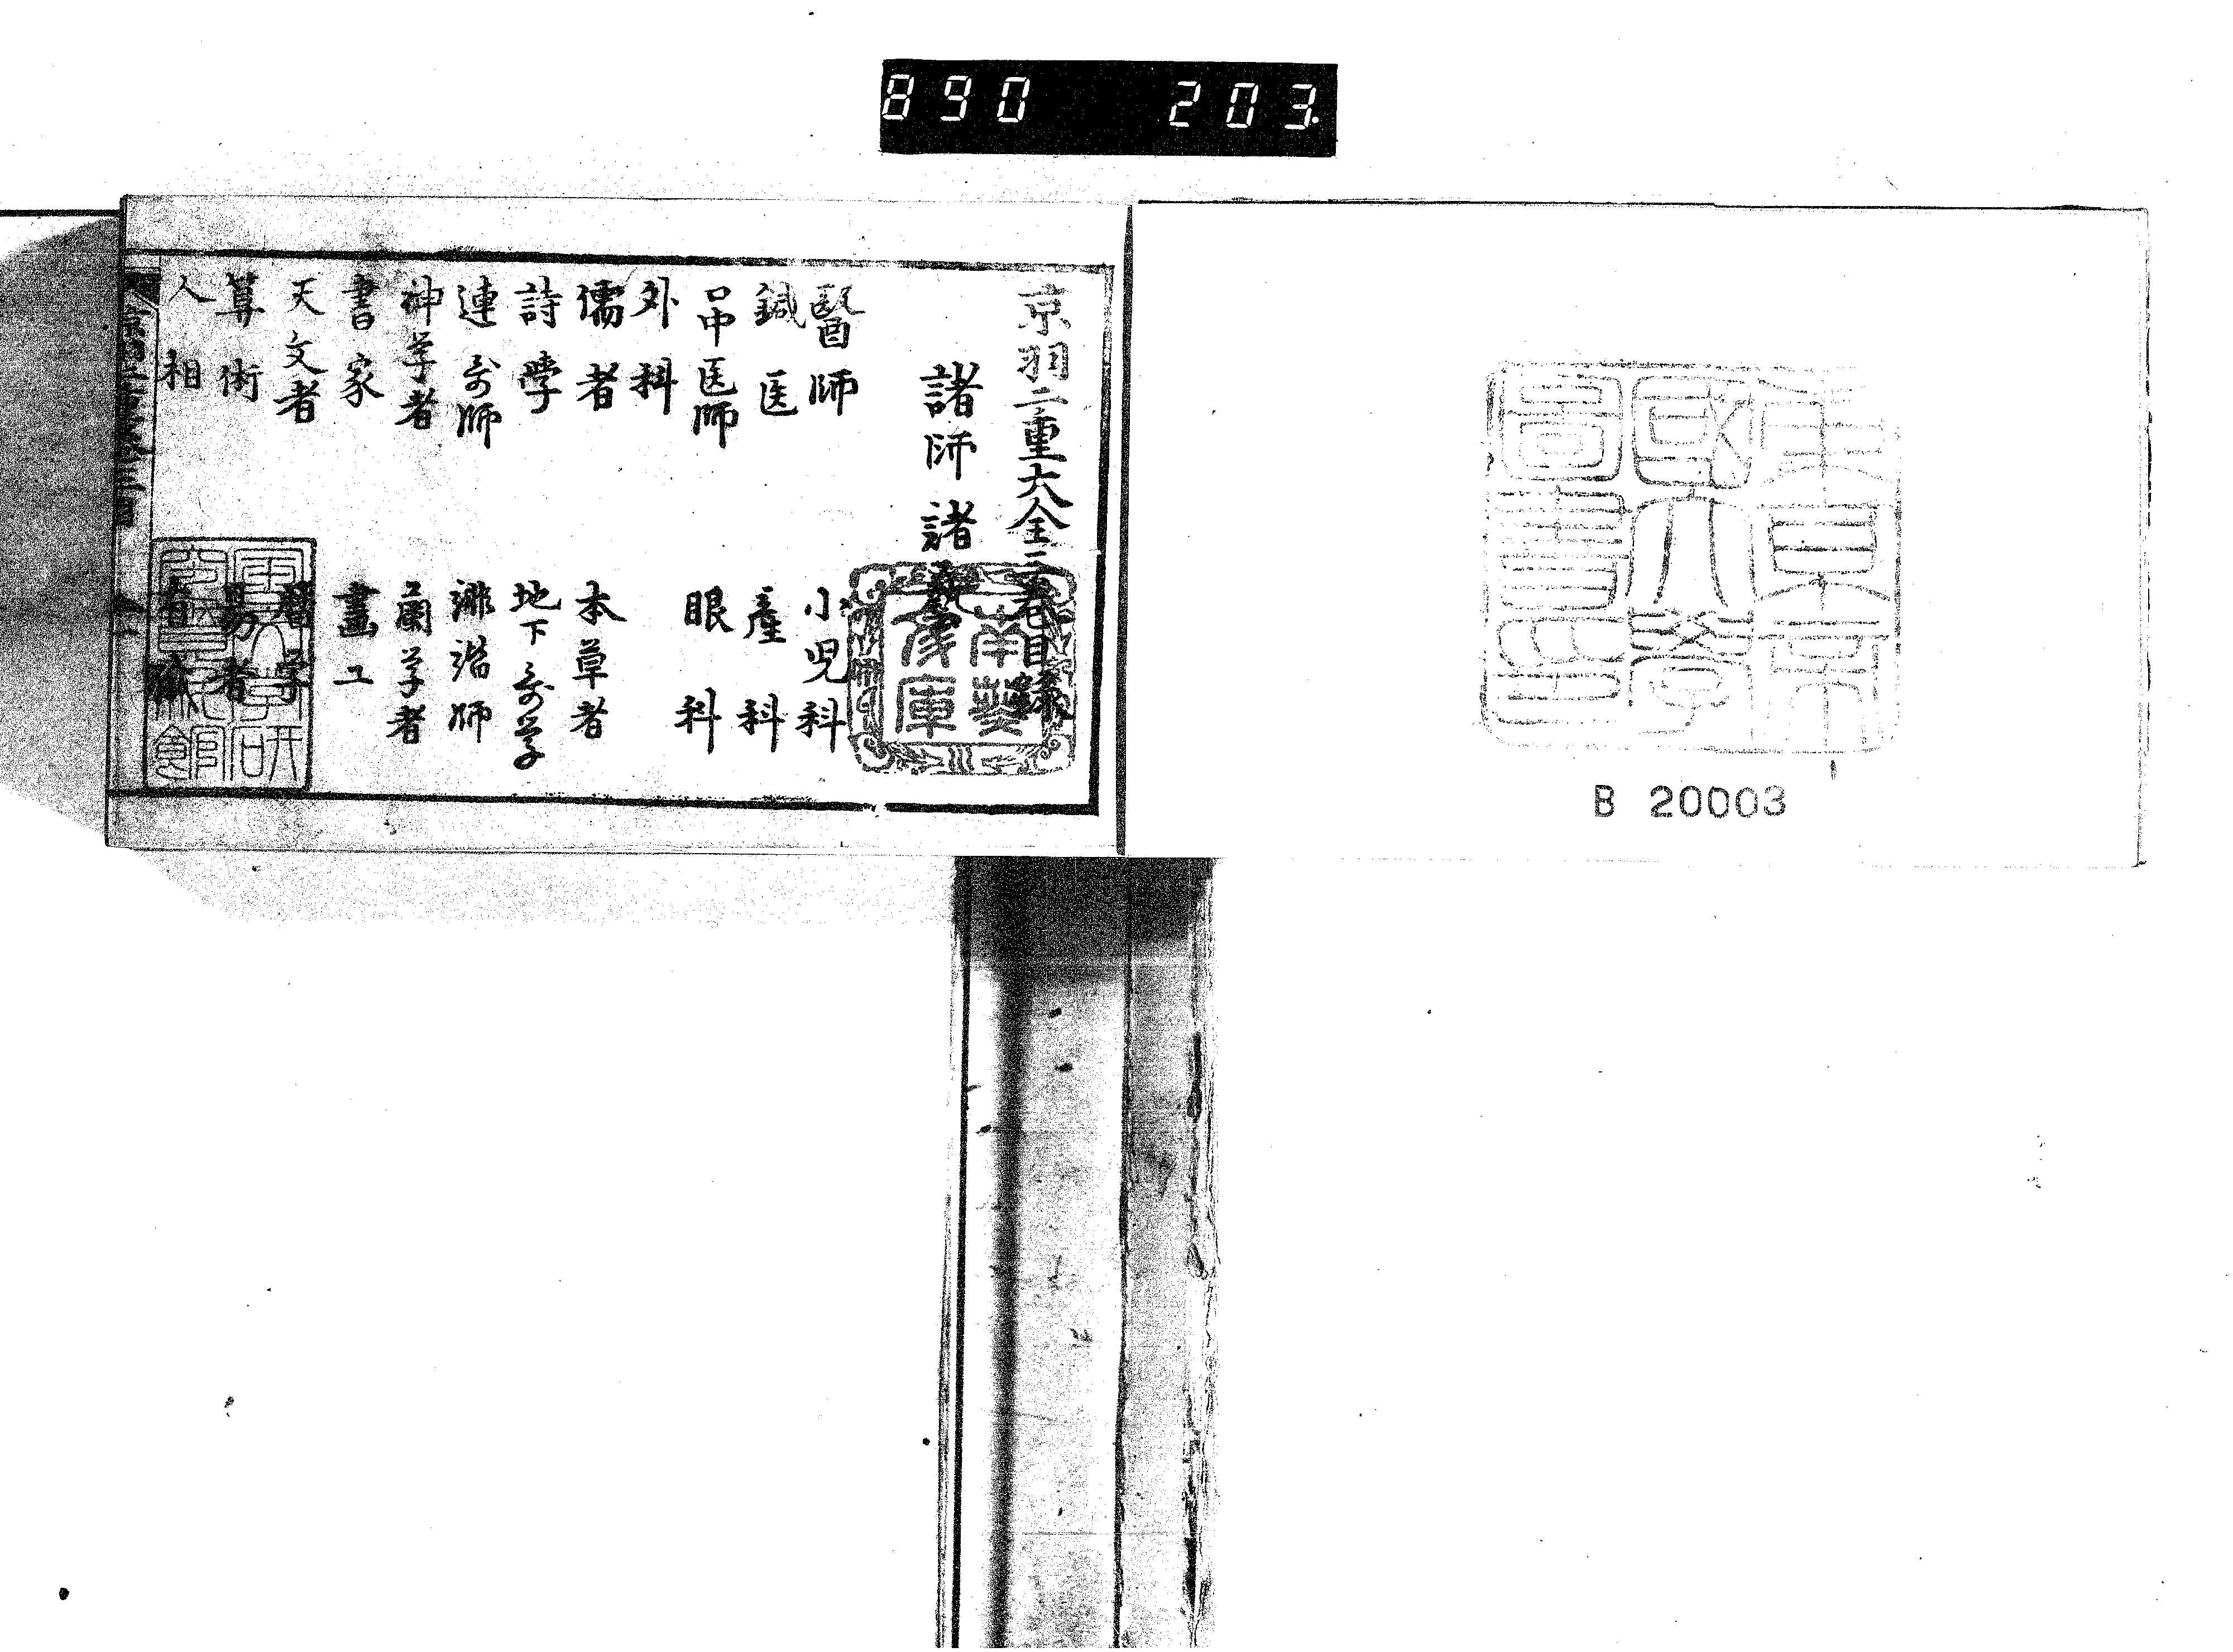 890 203.
京羽二重大全三巻目録
諸師諸藝
醫師 小児科
鍼医 産科
口中医師 眼科
外科
儒者 本草者
詩學 地下哥学
連哥師 誹諧師
神学者 蘭学者
書家 畫工
天文者 暦学
算術 易者
人相 有職
東京帝國大學圖書印
B 20003